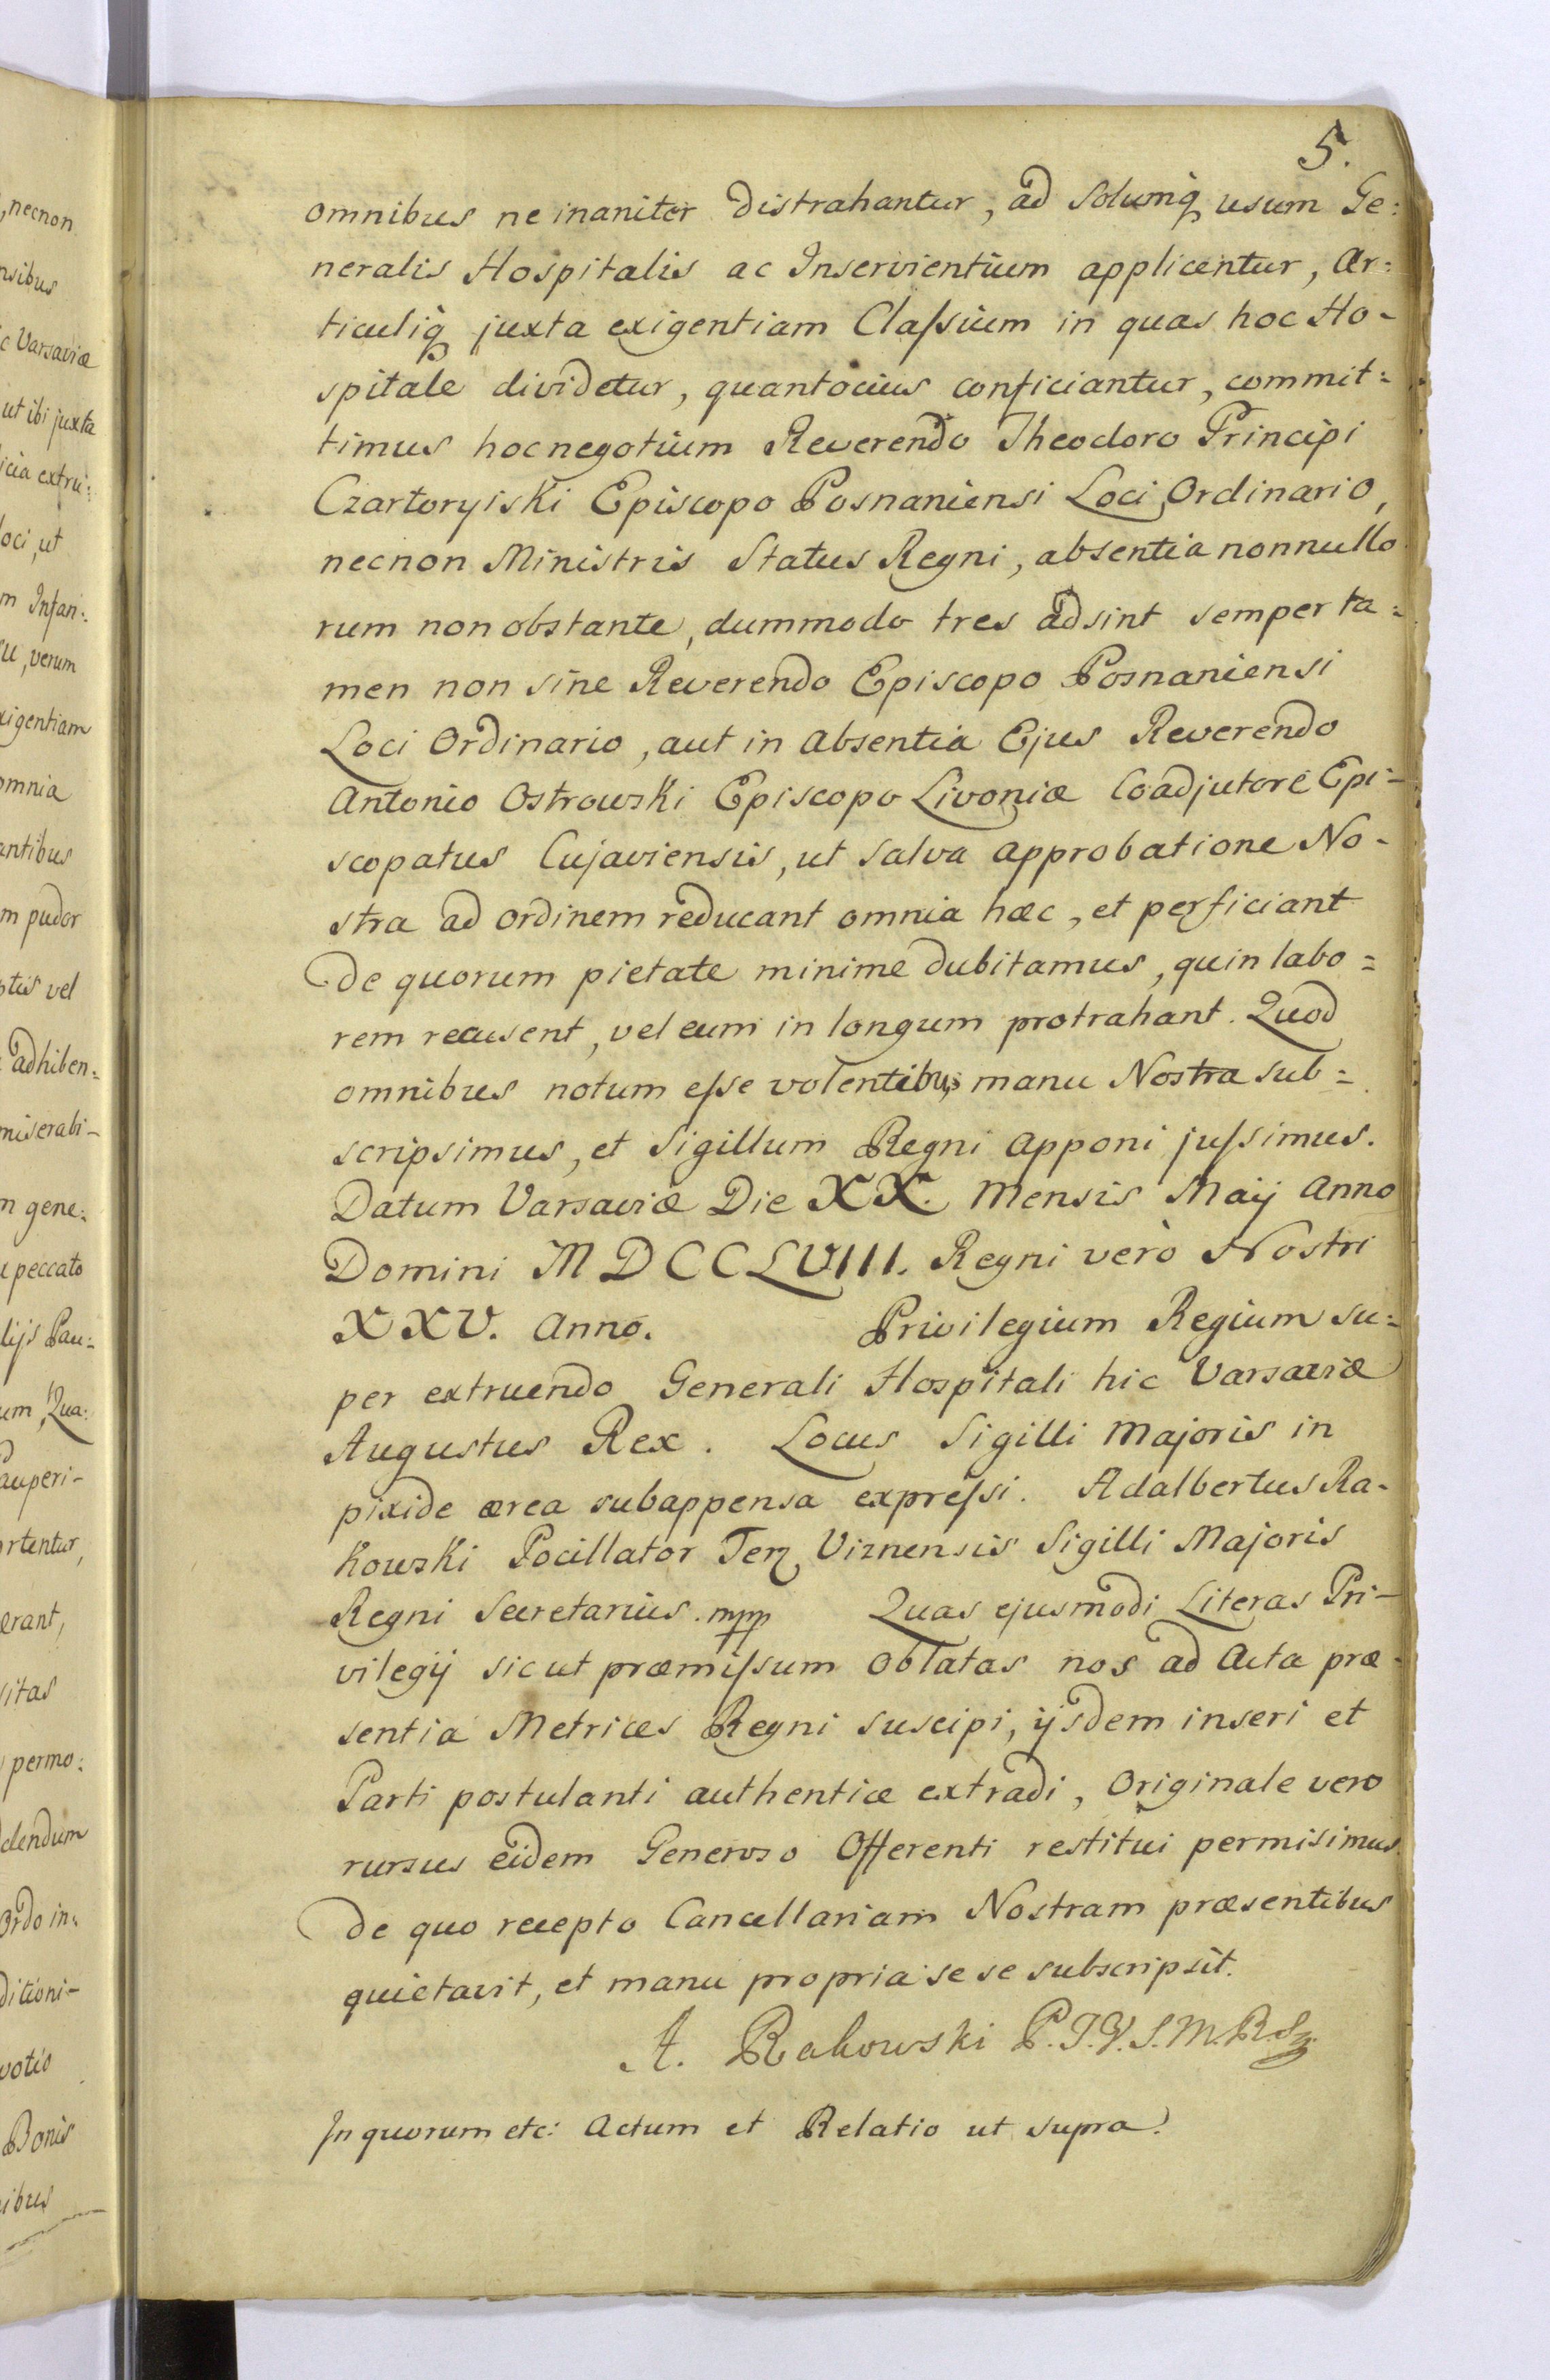 5.
omnibus ne inaniter distrahantur, ad Solumq; usum Ge:
neralis Hospitalis ac Inservientium applicentur, Ar:
ticuliq; juxta exigentiam Claſsium in quas hoc Ho-
spitale dividetur, quantocius conficiantur, commit=
timus hoc negotium Reverendo Theodoro Principi
Czartoryiski Episcopo Posnaniensi Loci Ordinario,
necnon Ministris Status Regni, absentia nonnullo
rum non obstante, dummodo tres adsint semper ta=
men non sine Reverendo Episcopo Posnaniensi
Loci Ordinario, aut in absentia Ejus Reverendo
Antonio Ostrowski Episcopo Livoniæ Coadjutore Epi-
scopatus Cujaviensis, ut salva approbatione No-
stra ad ordinem reducant omnia hæc, et perficiant
de quorum pietate minime dubitamus, quin labo=
rem recusent, vel eum in longum protrahant. Quod
omnibus notum eſse volentibus manu Nostra sub=
scripsimus, et Sigillum Regni apponi juſsimus.
Datum Varsaviæ Die XX. Mensis Maij Anno
Domini MDCCLVIII. Regni verò Nostri
XXV. Anno. Privilegium Regium su=
per extruendo Generali Hospitali hic Varsaviæ
Augustus Rex. Locus Sigilli Majoris in
pixide ærea subappensa expreſsi. Adalbertus Ra-
kowski Pocillator Terz Viznensis Sigilli Majoris
Regni Secretarius. mpp Quas ejusmodi Literas Pri-
vilegij sicut præmiſsum oblatas nos ad Acta præ-
sentia Metrices Regni suscipi, ijsdem inseri et
Parti postulanti authenticæ extradi, Originale vero
rursus eidem Generoso Offerenti restitui permisimus.
de quo recepto Cancellariam Nostram præsentibus
quietavit, et manu propria se se subscripsit.
A. Rakowski P.T.V.S.M.R.S.
In quorum etc: Actum et Relatio ut supra.